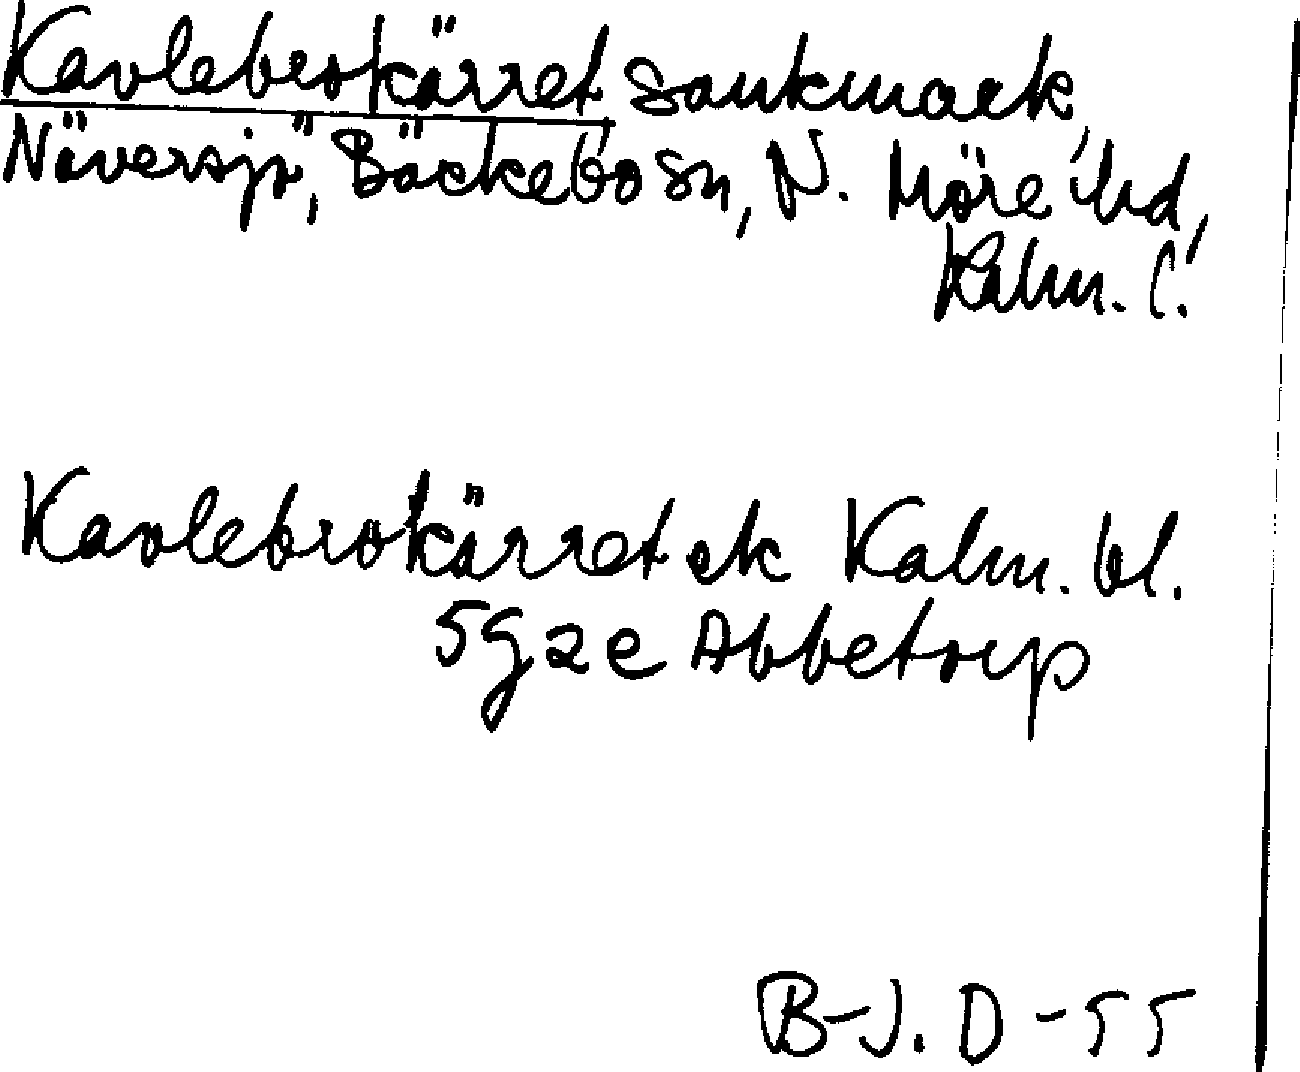 Kavlebrokärret sankmark,
Näversjö, Bäckebo sn, N. Möre hd,
Kalm. l.
Kavlebrokärret ek Kalm. bl.
5g2e Abbetorp
B-J. D -55